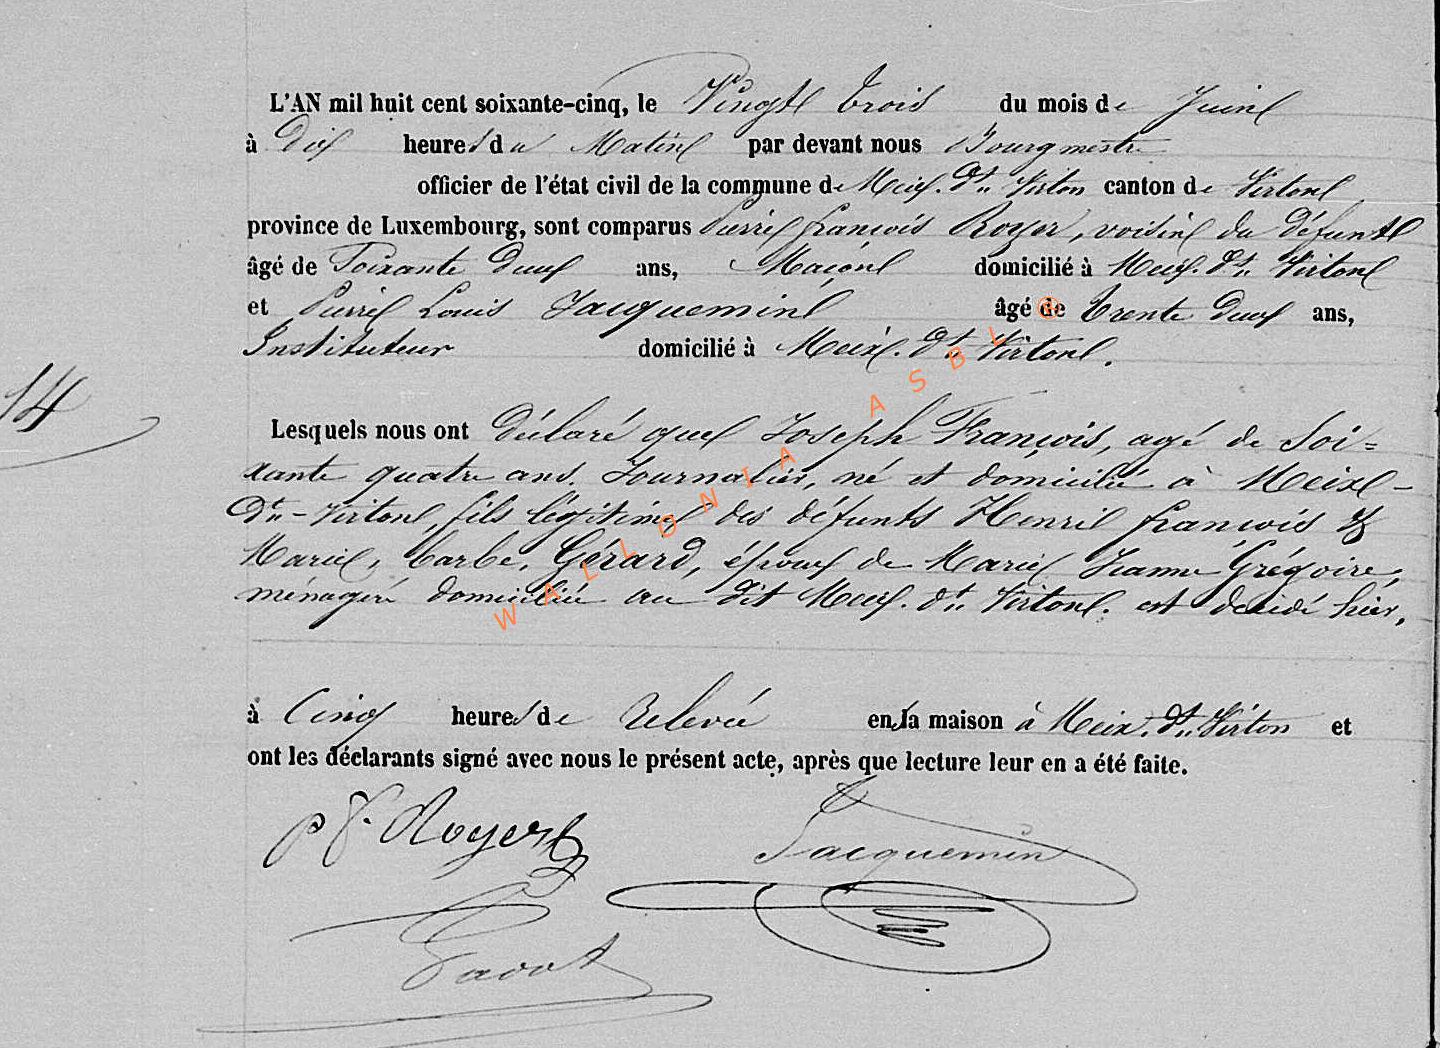 L'AN mil huit cent soixante-cinq, le Vingt trois du mois de Juin
à Dix heures du Matin par devant nous Bourgmestre
officier de l'état civil de la commune de Meix. dt. Virton canton de Virton
province de Luxembourg, sont comparus Pierre françois Royer, voisin du défunt
âgé de Soixante Deux ans, Maçon domicilié à Meix. dt. Virton
et Pierre Louis Jacquemin âgé de trente Deux ans,
Instituteur domicilié à Meix. dt. Virton.
14
Lesquels nous ont déclaré que Joseph François, agé de Soi=
xante quatre ans. Journalier, né et domicilié à Meix-
Dt.-Virton, fils légitime des défunts Henri françois &
Marie, barbe, Gérard, époux de Marie Jeanne Grégoire,
ménagère domiciliée au dit Meix. dt. Virton. est décédé hier,
à Cinq heures de Relevée en la maison à Meix. dt. Virton et
ont les déclarants signé avec nous le présent acte, après que lecture leur en a été faite.
p f. Royer
Jacquemin
WALLONIA ASBL ©